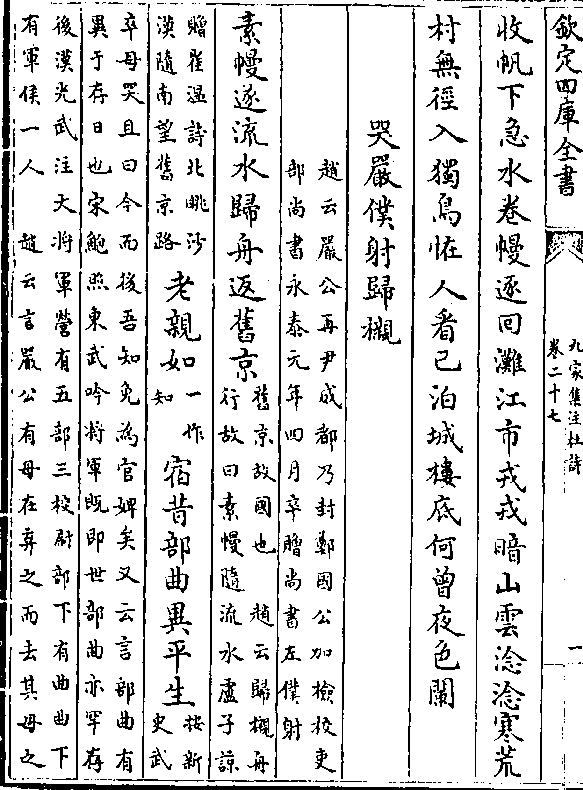 欽定四庫全書
九家集注杜詩
卷二十七
一
收帆下急水卷幔逐回灘江市戎戎暗山雲淰淰寒荒
村無徑入獨鳥恠人看已泊城樓底何曾夜色闌
哭嚴僕射歸櫬
趙云嚴公再尹成都乃封鄭國公加檢校吏
部尚書永泰元年四月卒贈尚書左僕射
素幔逐流水歸舟返舊京
舊京故國也趙云歸櫬舟
行故曰素幔隨流水盧子諒
贈崔温詩北眺沙
漠隨南望舊京路
老親如
一作
知
宿昔部曲異平生
按新
史武
卒母哭且曰今而後吾知免為官婢矣又云言部曲有
異于存日也宋鮑照東武吟將軍既即世部曲亦罕存
後漢光武注大將軍營有五部三校尉部下有曲曲下
有軍侯一人　趙云言嚴公有母在弃之而去其母之